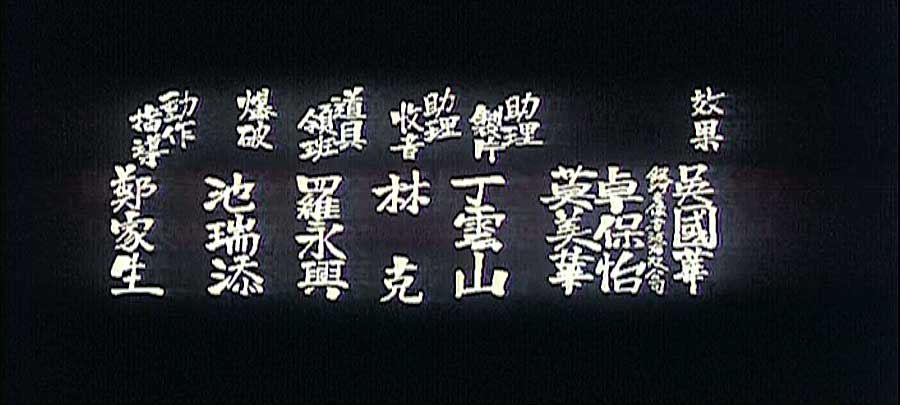 效果
吳國華
卓保怡
莫美華
助理
製片
丁雲山
助理
收音
林克
道具
領班
羅永興
爆破
池瑞添
動作
指導
鄭家生